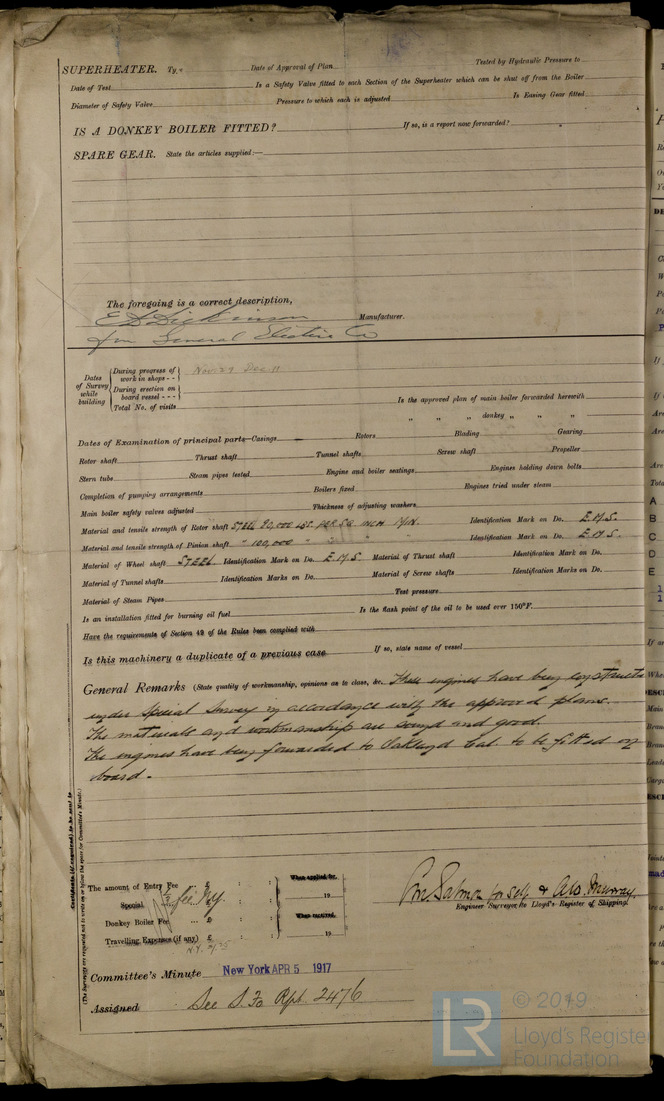 SUPERHEATER. Date of Approval of Plan Tested by Hydraulic Pressure to
Date of Test Is a Safety Valve fitted to each Section of the Superheater which can be shut off from the Boiler
Diameter of Safety Valve Pressure to which each is adjusted Is Easing Gear fitted
IS A DONKEY BOILER FITTED? If so, is a report now forwarded?
SPARE GEAR. State the articles supplied:—
The foregoing is a correct description,
E D Dickinson Manufacturer.
for General Electric Co
Dates of Survey while building
During progress of work in shops - - Nov. 27 Dec 11
During erection on board vessel - - -
Total No. of visits
Is the approved plan of main boiler forwarded herewith
" " donkey " " "
Dates of Examination of principal parts—Casings Rotors Blading Gearing
Rotor shaft Thrust shaft Tunnel shafts Screw shaft Propeller
Stern tube Steam pipes tested Engine and boiler seatings Engines holding down bolts
Completion of pumping arrangements Boilers fixed Engines tried under steam
Main boiler safety valves adjusted Thickness of adjusting washers
Material and tensile strength of Rotor shaft STEEL 90,000 LBS. PER SQ INCH MIN. Identification Mark on Do. E.M.S.
Material and tensile strength of Pinion shaft " 100,000 " Identification Mark on Do. E.M.S.
Material of Wheel shaft STEEL Identification Mark on Do. E.M.S. Material of Thrust shaft Identification Mark on Do.
Material of Tunnel shafts Identification Marks on Do. Material of Screw shafts Identification Marks on Do.
Material of Steam Pipes Test pressure
Is an installation fitted for burning oil fuel Is the flash point of the oil to be used over 150°F.
Have the requirements of Section 49 of the Rules been complied with
Is this machinery a duplicate of a previous case If so, state name of vessel
General Remarks (State quality of workmanship, opinions as to class, &c. These engines have been constructed
under Special Survey in accordance with the approved plans.
The materials and workmanship are sound and good.
The engines have been forwarded to Oakland Cal. to be fitted on
board.
Certificate (if required) to be sent to
(The Surveyors are requested not to write on or below the space for Committee's Minute.)
The amount of Entry Fee .. £ : : When applied for,
Special £ : : 19
Donkey Boiler Fee ... £ : : When received,
Travelling Expenses (if any) £ : : 19
Salmon for self & Alb. Murray
Engineer Surveyor to Lloyd's Register of Shipping
Committee's Minute New York APR 5 1917
Assigned See S. Fo Rpt. 2476
LR © 2019
Lloyd's Register
Foundation